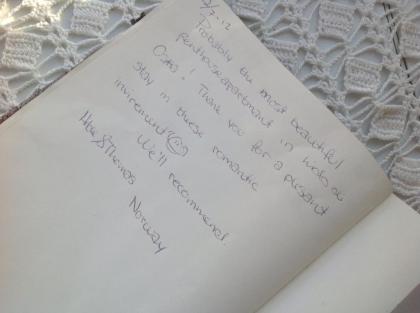 Probably the most beautiful
penthouse apartment in
! Thank you for a plesant
stay in these romantic
invirement
We'll recommend.
& Thomas
Norway